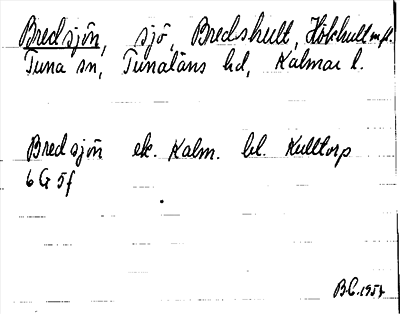 Bredsjön, sjö, Bredshult, Hökhult m.fl.
Tuna sn, Tunaläns hd, Kalmar l.
Bredsjön ek. Kalm. bl. Hulltorp
6 G 5f
B.C. 1957